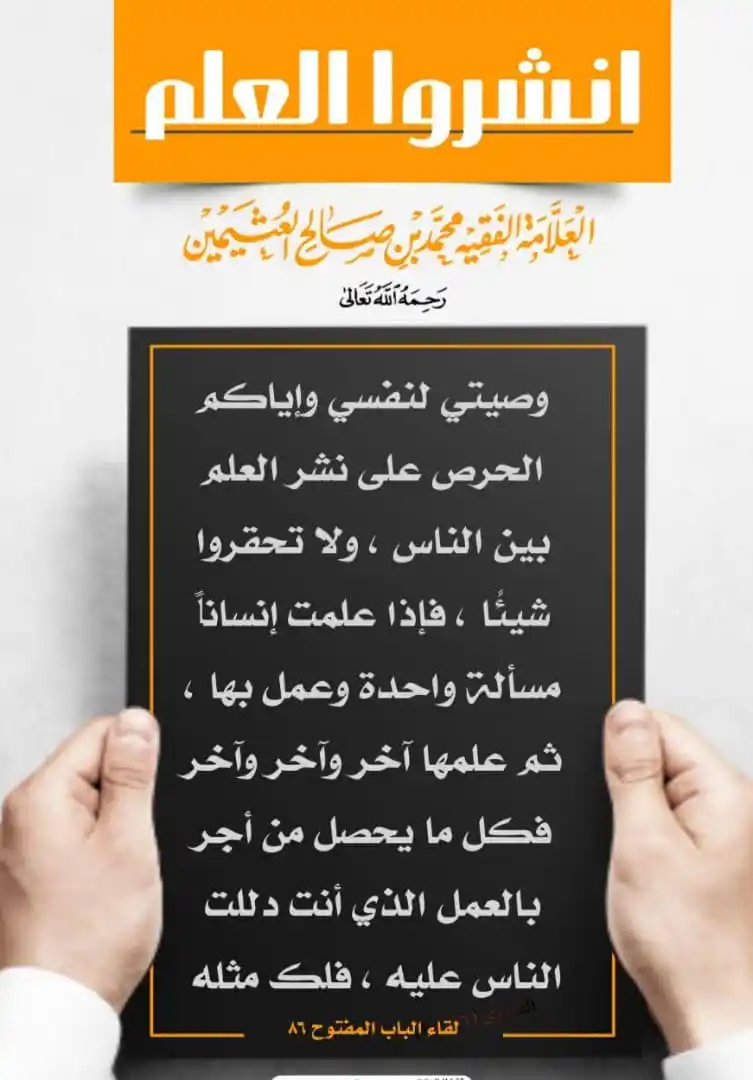 انشروا العلم
العَلَّامَة الفَقِيه مُحَمَّد بْن صَالِح العُثَيْمِين
رَحِمَهُ اللَّهُ تَعَالَى
وصيتي لنفسي وإياكم
الحرص على نشر العلم
بين الناس ، ولا تحقروا
شيئًا ، فإذا علمت إنساناً
مسألة واحدة وعمل بها ،
ثم علمها آخر وآخر وآخر
فكل ما يحصل من أجر
بالعمل الذي أنت دللت
الناس عليه ، فلك مثله
لقاء الباب المفتوح ٨٦